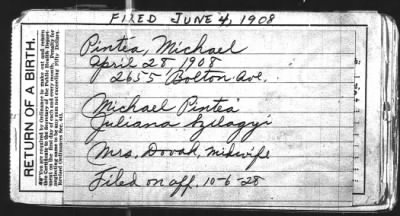 FILED JUNE 4, 1908
RETURN OF A BIRTH.
Pintea, Michael
April 28 1908
2655 Bolton Ave.
Michael Pintea
Juliana Szilagyi
Mrs. Dovak, midwife
Filed on aff. 10-6-28